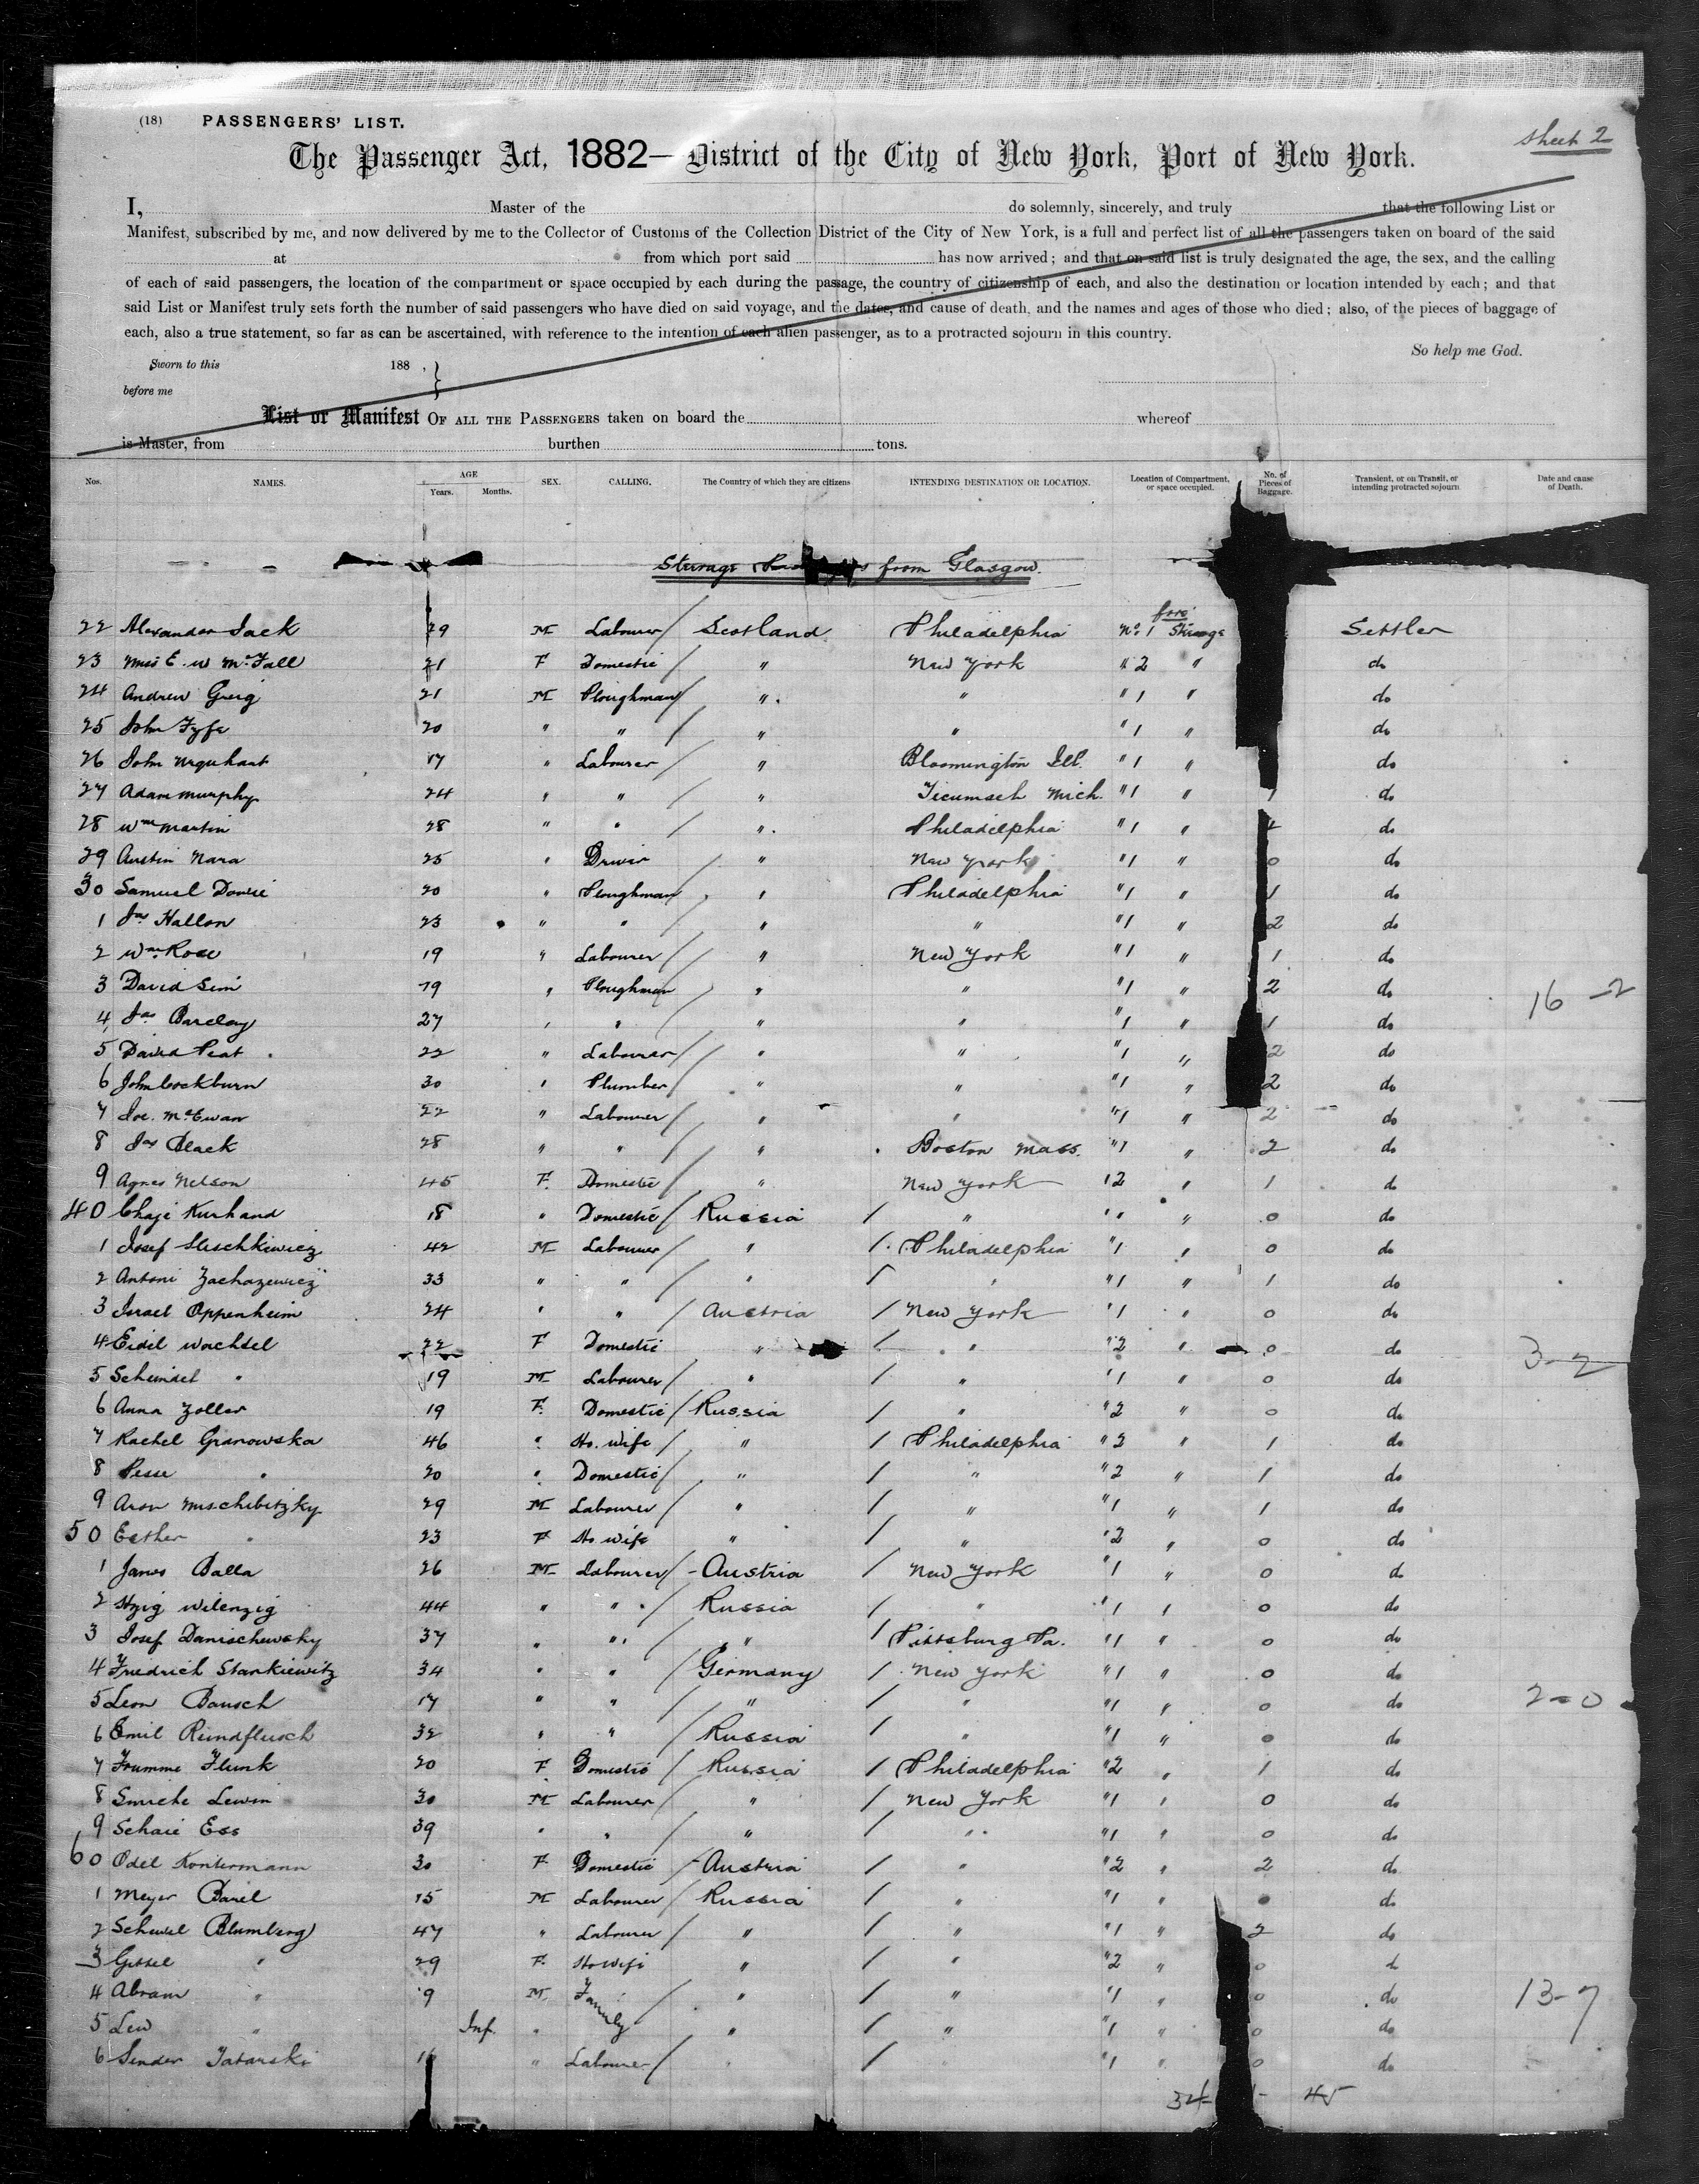 (18) PASSENGERS' LIST.
sheet 2
The Passenger Act, 1882— District of the City of New York, Port of New York.
I, Master of the do solemnly, sincerely, and truly that the following List or
Manifest, subscribed by me, and now delivered by me to the Collector of Customs of the Collection District of the City of New York, is a full and perfect list of all the passengers taken on board of the said
at from which port said has now arrived; and that on said list is truly designated the age, the sex, and the calling
of each of said passengers, the location of the compartment or space occupied by each during the passage, the country of citizenship of each, and also the destination or location intended by each; and that
said List or Manifest truly sets forth the number of said passengers who have died on said voyage, and the dates, and cause of death, and the names and ages of those who died; also, of the pieces of baggage of
each, also a true statement, so far as can be ascertained, with reference to the intention of each alien passenger, as to a protracted sojourn in this country.
So help me God.
Sworn to this 188 , }
before me
List or Manifest OF ALL THE PASSENGERS taken on board the whereof
is Master, from burthen tons.
Nos. NAMES. AGE Years. Months. SEX. CALLING. The Country of which they are citizens INTENDING DESTINATION OR LOCATION. Location of Compartment, or space occupied. No. of Pieces of Baggage. Transient, or on Transit, or intending protracted sojourn Date and cause of Death.
from Glasgow.
22 Alexander Jack 29 M Labourer / Scotland Philadelphia No. 1 Settler
23 Miss E. W McFall 21 F Domestic / " New York " 2 " do
24 Andrew Greig 21 M Ploughman / " " " 1 " do
25 John Fyfe 20 " " / " " " 1 " do
26 John Urquhart 17 " Labourer / " Bloomington Ill. " 1 " do
27 Adam Murphy 24 " " / " Tecumseh Mich. " 1 " 1 do
28 Wm Martin 28 " " / " Philadelphia " 1 " do
29 Austin Nara 25 " Driver / " New York " 1 " 0 do
30 Samuel Dowie 20 " Ploughman / " Philadelphia " 1 " 1 do
1 Jas Hallon 23 " " / " " " 1 " 2 do
2 Wm Rose 19 " Labourer / " New York " 1 " 1 do
3 David Sim 19 " Ploughman / " " " 1 " 2 do 16-2
4 Jas Barclay 27 " " / " " " 1 " 1 do
5 David Peat 22 " Labourer / " " " 1 " 2 do
6 John Cockburn 30 " Plumber / " " " 1 " 2 do
7 McEwan 22 " Labourer / " " " 1 " 2 do
8 Jas Black 28 " " / " Boston Mass. " 1 " 2 do
9 Agnes Nelson 45 F. Domestic " New York 12 " 1 do
40 Chaje Kurhand 18 " Domestic / Russia / " " " 0 do
1 Josef 42 M Labourer / " / Philadelphia " 1 " 0 do
2 Antoni Zachazewicz 33 " " / " / " " 1 " 1 do
3 Israel Oppenheim 24 " " / Austria / New York " 1 " 0 do
4 Eidel Wachtel 22 F Domestic " / " " 2 " 0 do 3-2
5 Scheindel " 19 M Labourer / " / " " 1 " 0 do
6 Anna Zoller 19 F. Domestic / Russia / " " 2 " 0 do
7 Rachel Granowska 46 " Ho. wife / " / Philadelphia " 2 " 1 do
8 Pesse " 20 " Domestic / " / " " 2 " 1 do
9 Aron Mischibitzky 29 M Labourer / " / " " 1 " 1 do
50 Esther " 23 F Ho wife " / " " 2 " 0 do
1 Janos Balla 26 M Labourer / - Austria / New York " 1 " 0 do
2 Wilenzig 44 " " / Russia / " " 1 " 0 do
3 Josef Danischewsky 37 " " " / Pittsburg Pa. " 1 " 0 do
4 Friedrich Stankiewitz 34 " " / Germany / New York " 1 " 0 do
5 Leon Bausch 17 " " / " / " " 1 " 0 do 2-0
6 Emil Rindfleisch 32 " " / Russia / " " 1 " 0 do
7 Frumme Flunk 20 F Domestic / Russia / Philadelphia " 2 " 1 do
8 Smiche Lewin 30 M Labourer " / New York " 1 " 0 do
9 Schaie Ess 39 " " " / " " 1 " 0 do
60 Odel Kontermann 30 F. Domestic - Austria / " " 2 " 2 do
1 Meyer Bariel 15 M Labourer / Russia / " " 1 " 0 do
2 Blumberg 47 " Labourer / " / " " 1 " 2 do
3 Gissel " 29 F. Ho wife " / " " 2 " 0 do
4 Abram " 9 M. Family " / " " 1 " 0 do 13-7
5 Lew " Inf. " " / " " 1 " 0 do
6 Sender Tatarski " Labourer / " / " 1 " 0 do
34 45